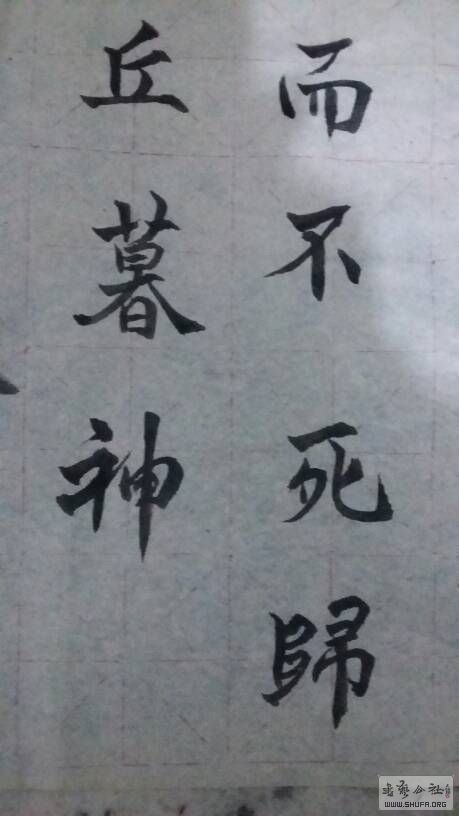 而不死歸
丘暮神
WWW.SHUFA.ORG